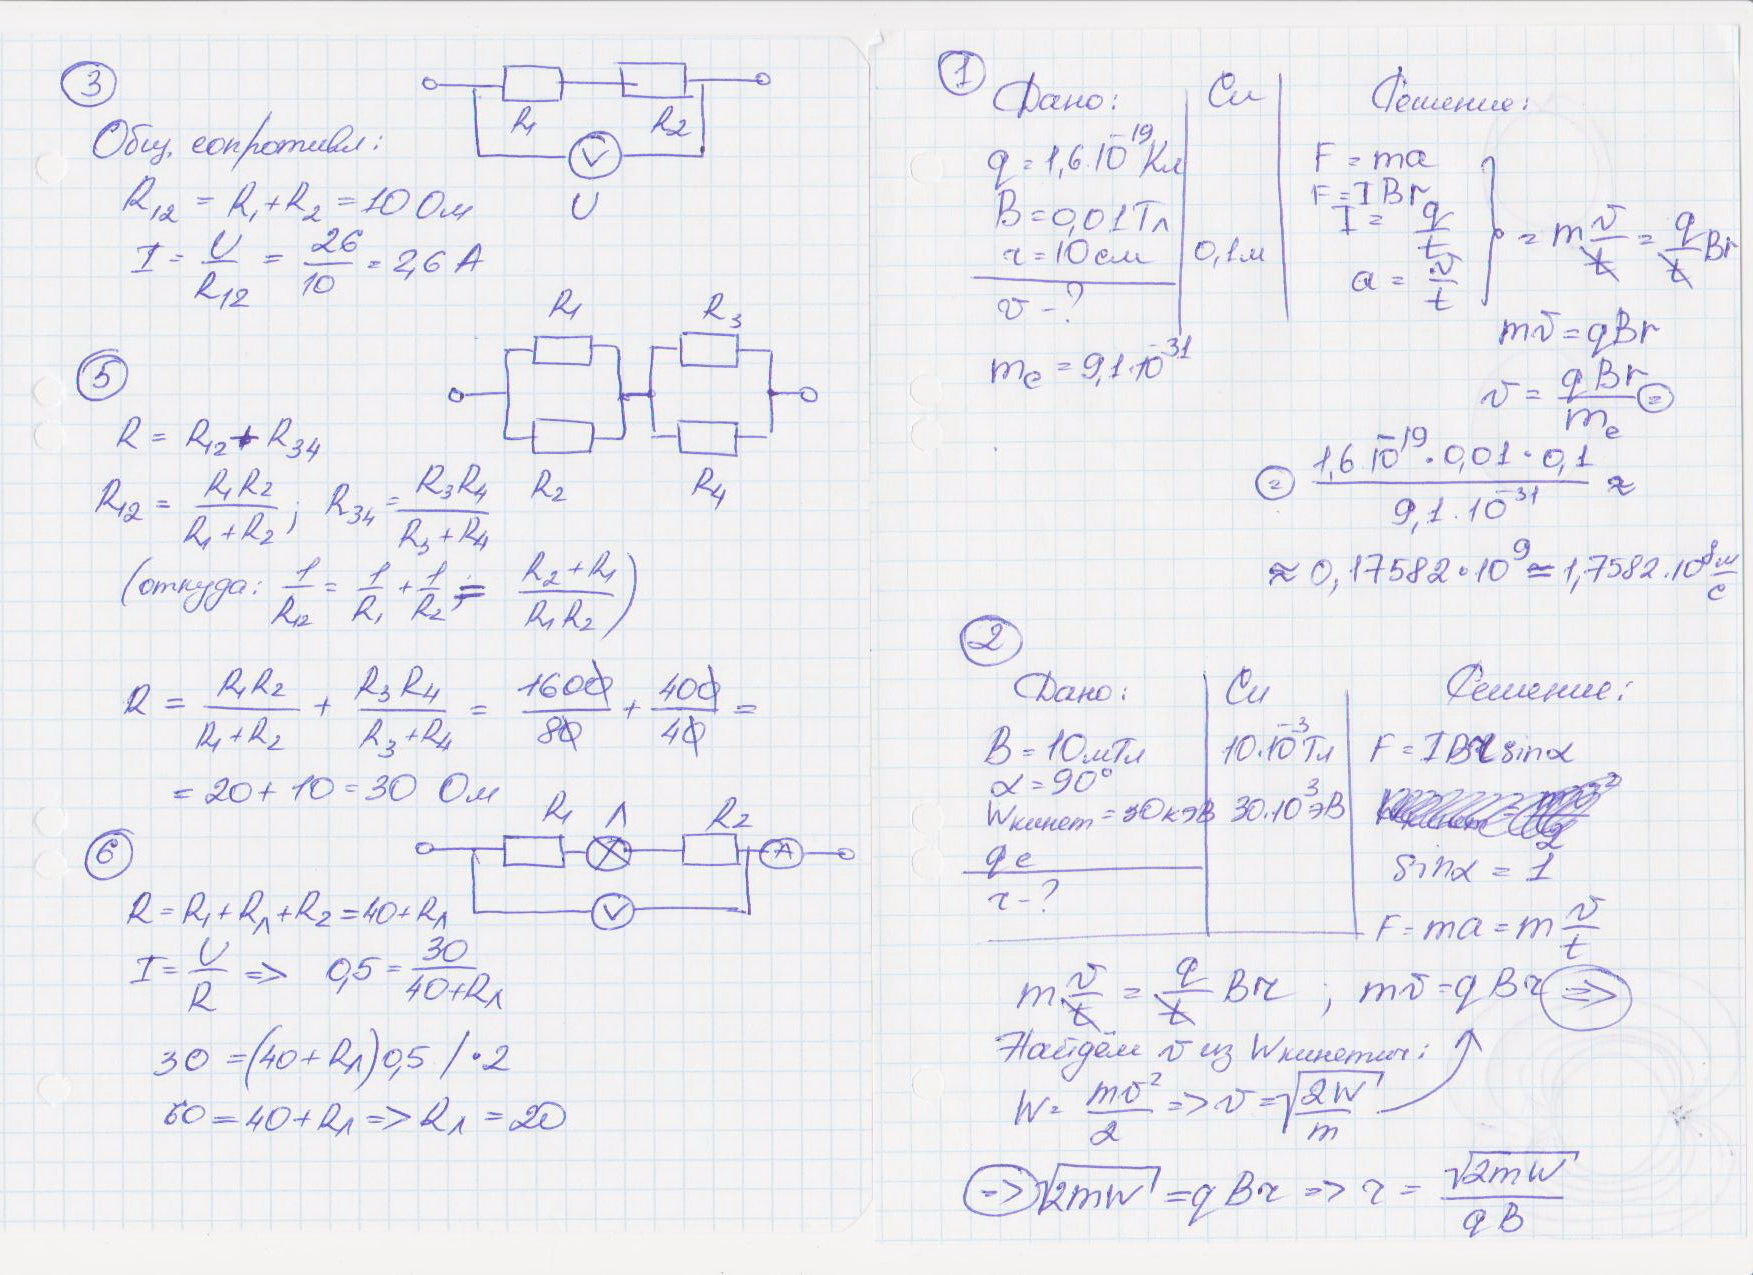 3
R₁ R₂
V
U
Общ. сопротивл:
R₁₂ = R₁+R₂ = 10 Ом
I = U/R₁₂ = 26/10 = 2,6 А
5
R₁ R₃
R₂ R₄
R = R₁₂ + R₃₄
R₁₂ = R₁R₂/(R₁+R₂); R₃₄ = R₃R₄/(R₃+R₄)
(откуда: 1/R₁₂ = 1/R₁ + 1/R₂ = (R₂+R₁)/(R₁R₂))
R = R₁R₂/(R₁+R₂) + R₃R₄/(R₃+R₄) = 1600/80 + 400/40 =
= 20 + 10 = 30 Ом
6
R₁ Л R₂
A
V
R = R₁+R_Л+R₂ = 40+R_Л
I = U/R => 0,5 = 30/(40+R_Л)
30 = (40+R_Л)0,5 / ·2
60 = 40+R_Л => R_Л = 20
1
Дано: Си Решение:
q = 1,6·10⁻¹⁹ Кл
B = 0,01 Тл
r = 10 см 0,1 м
v - ?
mₑ = 9,1·10⁻³¹
F = ma
F = IBr
I = q/t
a = v/t
= m v/t = q/t Br
mv = qBr
v = qBr/mₑ =
= 1,6·10⁻¹⁹·0,01·0,1/9,1·10⁻³¹ ≈
≈ 0,17582·10⁹ ≃ 1,7582·10⁸ м/с
2
Дано: Си Решение:
B = 10 мТл 10·10⁻³ Тл F = IBr sinα
α = 90°
Wкинет = 30 кэВ 30·10³ эВ
qe sinα = 1
r - ?
F = ma = m v/t
m v/t = q/t Br ; mv = qBr =>
Найдём v из Wкинетич:
W = mv²/2 => v = √(2W/m)
=> √(2mW) = qBr => r = √(2mW)/qB